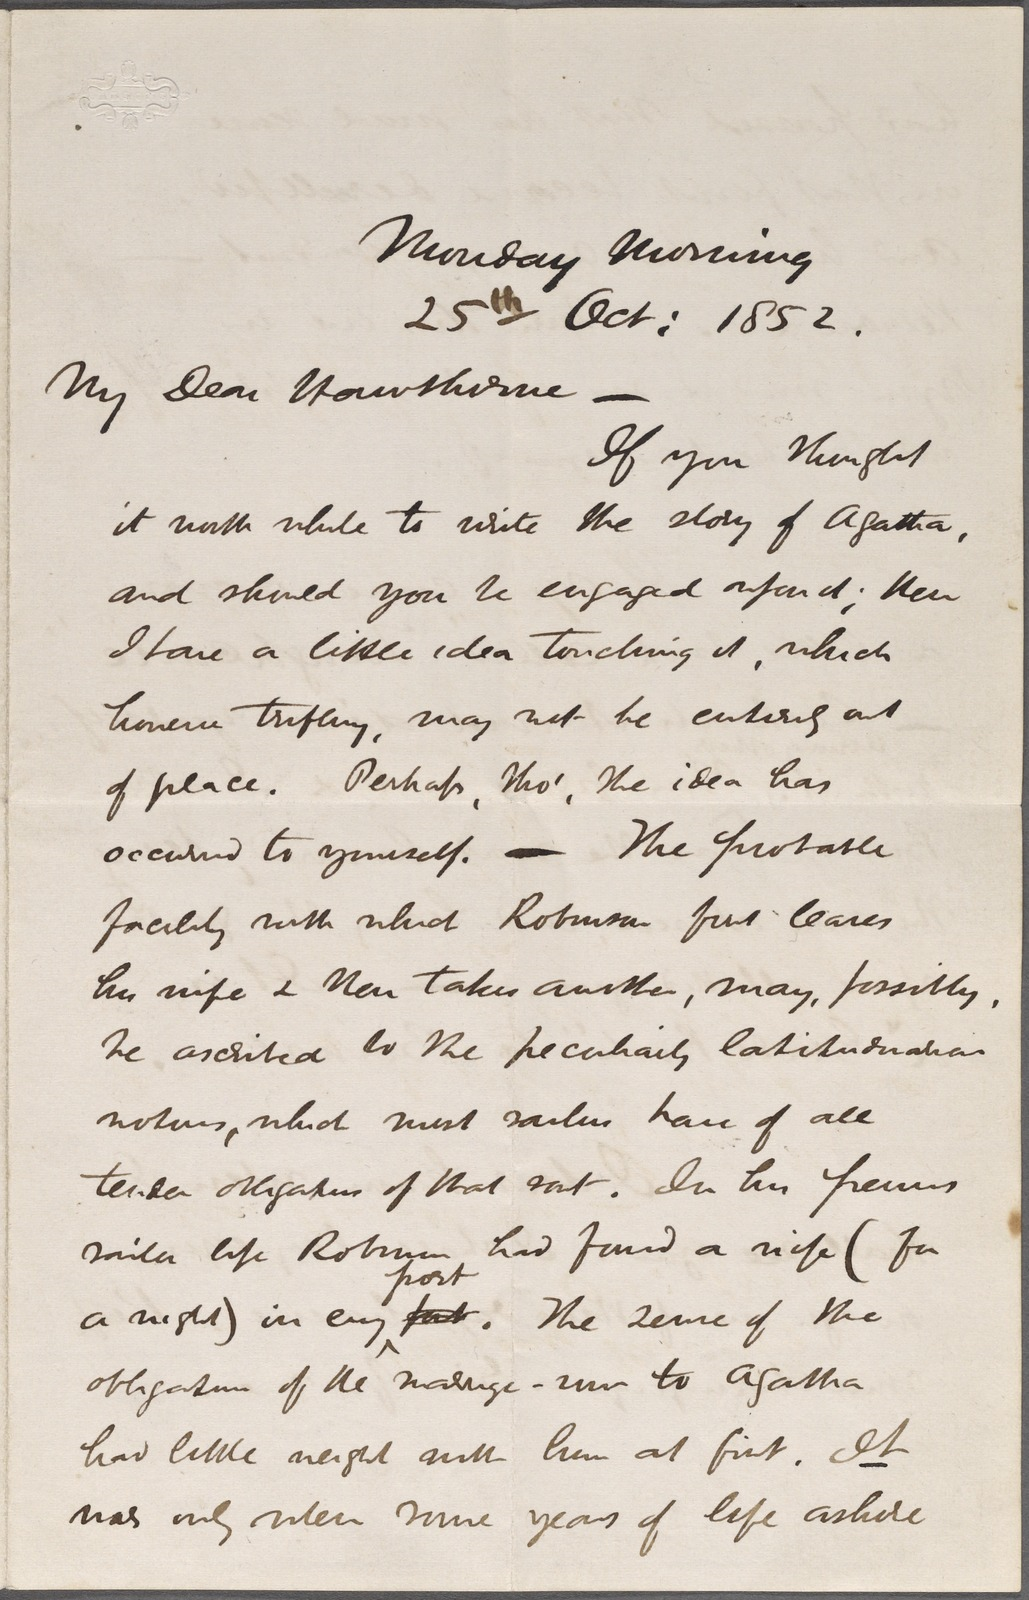 Monday Morning
25th Oct: 1852.
My Dear Hawthorne —
If you thought
it worth while to write the story of Agatha,
and should you be engaged upon it; then
I have a little idea touching it, which
however trifling, may not be entirely out
of place. Perhaps, tho', the idea has
occurred to yourself. — The probable
facility with which Robinson first leaves
his wife & then takes another, may, possibly,
be ascribed to the peculiarly latitudinarian
notions, which most sailors have of all
tender obligations of that sort. In his previous
sailor life Robinson had found a wife (for
a night) in every port. The sense of the
obligation of the marriage-vow to Agatha
had little weight with him at first. It
was only when some years of life ashore